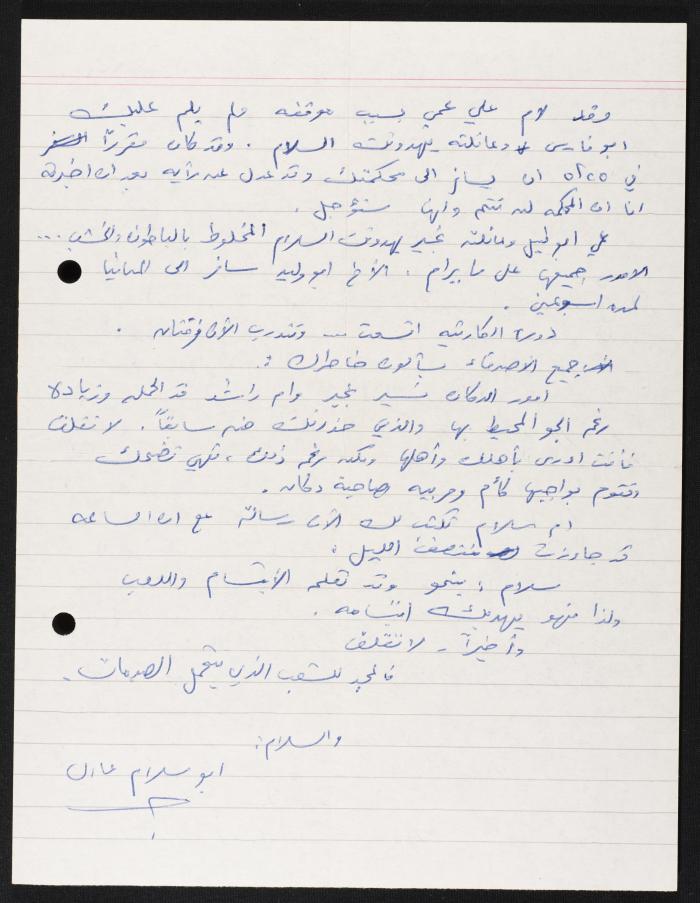 وقد لام علي عمي بسبب موقفه ولم يلم عليك
ابو فارس وعائلته يهدونك السلام . وقد كان مقرراً
في ٢٥/٥ ان يسافر الى محكمتك وقد عدل عن رأيه بعد ان اخبرته
انا ان المحكمه لن تتم وانها ستؤجل .
علي ابو ليل وعائلته بخير يهدونك السلام المخلوط بالباطون والخشب ...
الامور جميعها على ما يرام . الأخ ابو وليد سافر الى المانيا
لمده اسبوعين .
دورة الكاراتيه اتسعت ... وتتدرب الأن فرقتان .
جميع الاصدقاء يسألون خاطرك :
امور الدكان تسير بخير وام راشد قد الحمله وزياده
رغم الجو المحيط بها والذي حذرتك منه سابقاً . لا تقلق
فأنت ادرى بأهلك وأهلها ولكن رغم ذلك ، فهي تضحك
وتقوم بواجبها كأم ومربيه وصاحبة دكان .
ام سلام تكتب لك الآن رسالة مع ان الساعه
قد جاوزت منتصف الليل :
سلام : ينمو وقد تعلم الأبتسام واللعب
ولذا فهو يهديك ابتسامه .
وأخيراً - لا تقلق
فالمجد للشعب الذي يتحمل الصدمات .
والسلام :
ابو سلام عادل